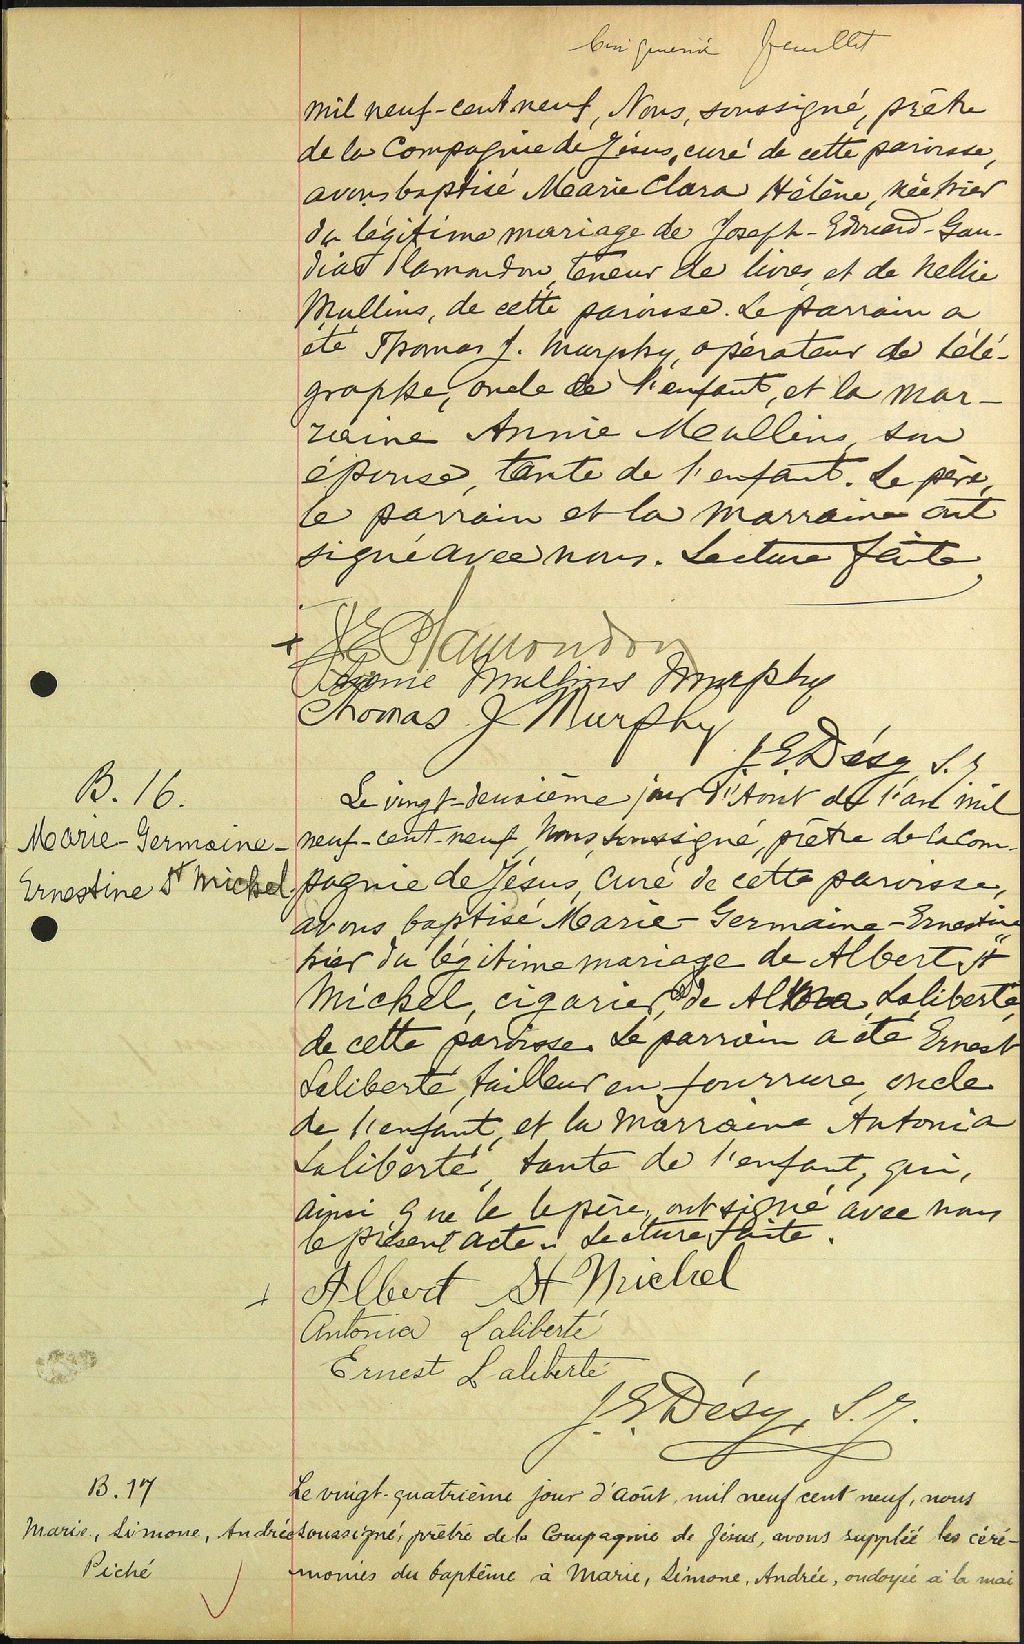 Cinquième feuillet
mil neuf-cent neuf, Nous, soussigné, prêtre
de la Compagnie de Jésus, curé de cette paroisse,
avons baptisé Marie Clara Hélène, née hier
du légitime mariage de Joseph-Edouard-Gau-
dias Plamondon, teneur de livres, et de Nellie
Mullins, de cette paroisse. Le parrain a
été Thomas J. Murphy, opérateur de télé-
graphe, oncle de l'enfant, et la mar-
raine Annie Mullins, son
épouse, tante de l'enfant. Le père,
le parrain et la marraine ont
signé avec nous. Lecture faite,
+ J E Plamondon
Annie Mullins Murphy
Thomas J Murphy
J. E. Désy, S. J.
B. 16.
Marie-Germaine-
Ernestine St Michel
Le vingt-deuxième jour d'Août de l'an mil
neuf-cent-neuf, Nous, soussigné, prêtre de la Com-
pagnie de Jésus, Curé de cette paroisse,
avons baptisé Marie-Germaine-Ernestine
hier du légitime mariage de Albert St
Michel, cigarier, de Laliberté,
de cette paroisse. Le parrain a été Ernest
Laliberté, tailleur en fourrure, oncle
de l'enfant, et la marraine Antonia
Laliberté, tante de l'enfant, qui,
ainsi que le le père, ont signé avec nous
le présent acte. Lecture faite.
+ Albert St Michel
Antonia Laliberté
Ernest Laliberté
J. E. Désy, S. J.
B. 17
Marie, Simone, Andrée
Piché
Le vingt-quatrième jour d'Août, mil neuf cent neuf, nous
soussigné, prêtre de la Compagnie de Jésus, avons suppléé les céré-
monies du baptême à Marie, Simone, Andrée, ondoyée à la mai